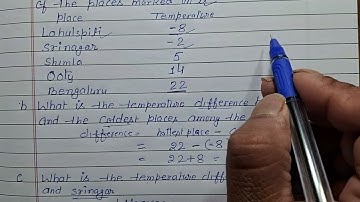 of the places marked in it
place Temperature
Lahulspiti -8
Srinagar -2
Shimla 5
Ooty 14
Bengaluru 22
b What is the temperature difference
and the coldest places among the
difference = hottest place -
= 22 - (-8
= 22+8 =
c What is the temperature
and srinagar